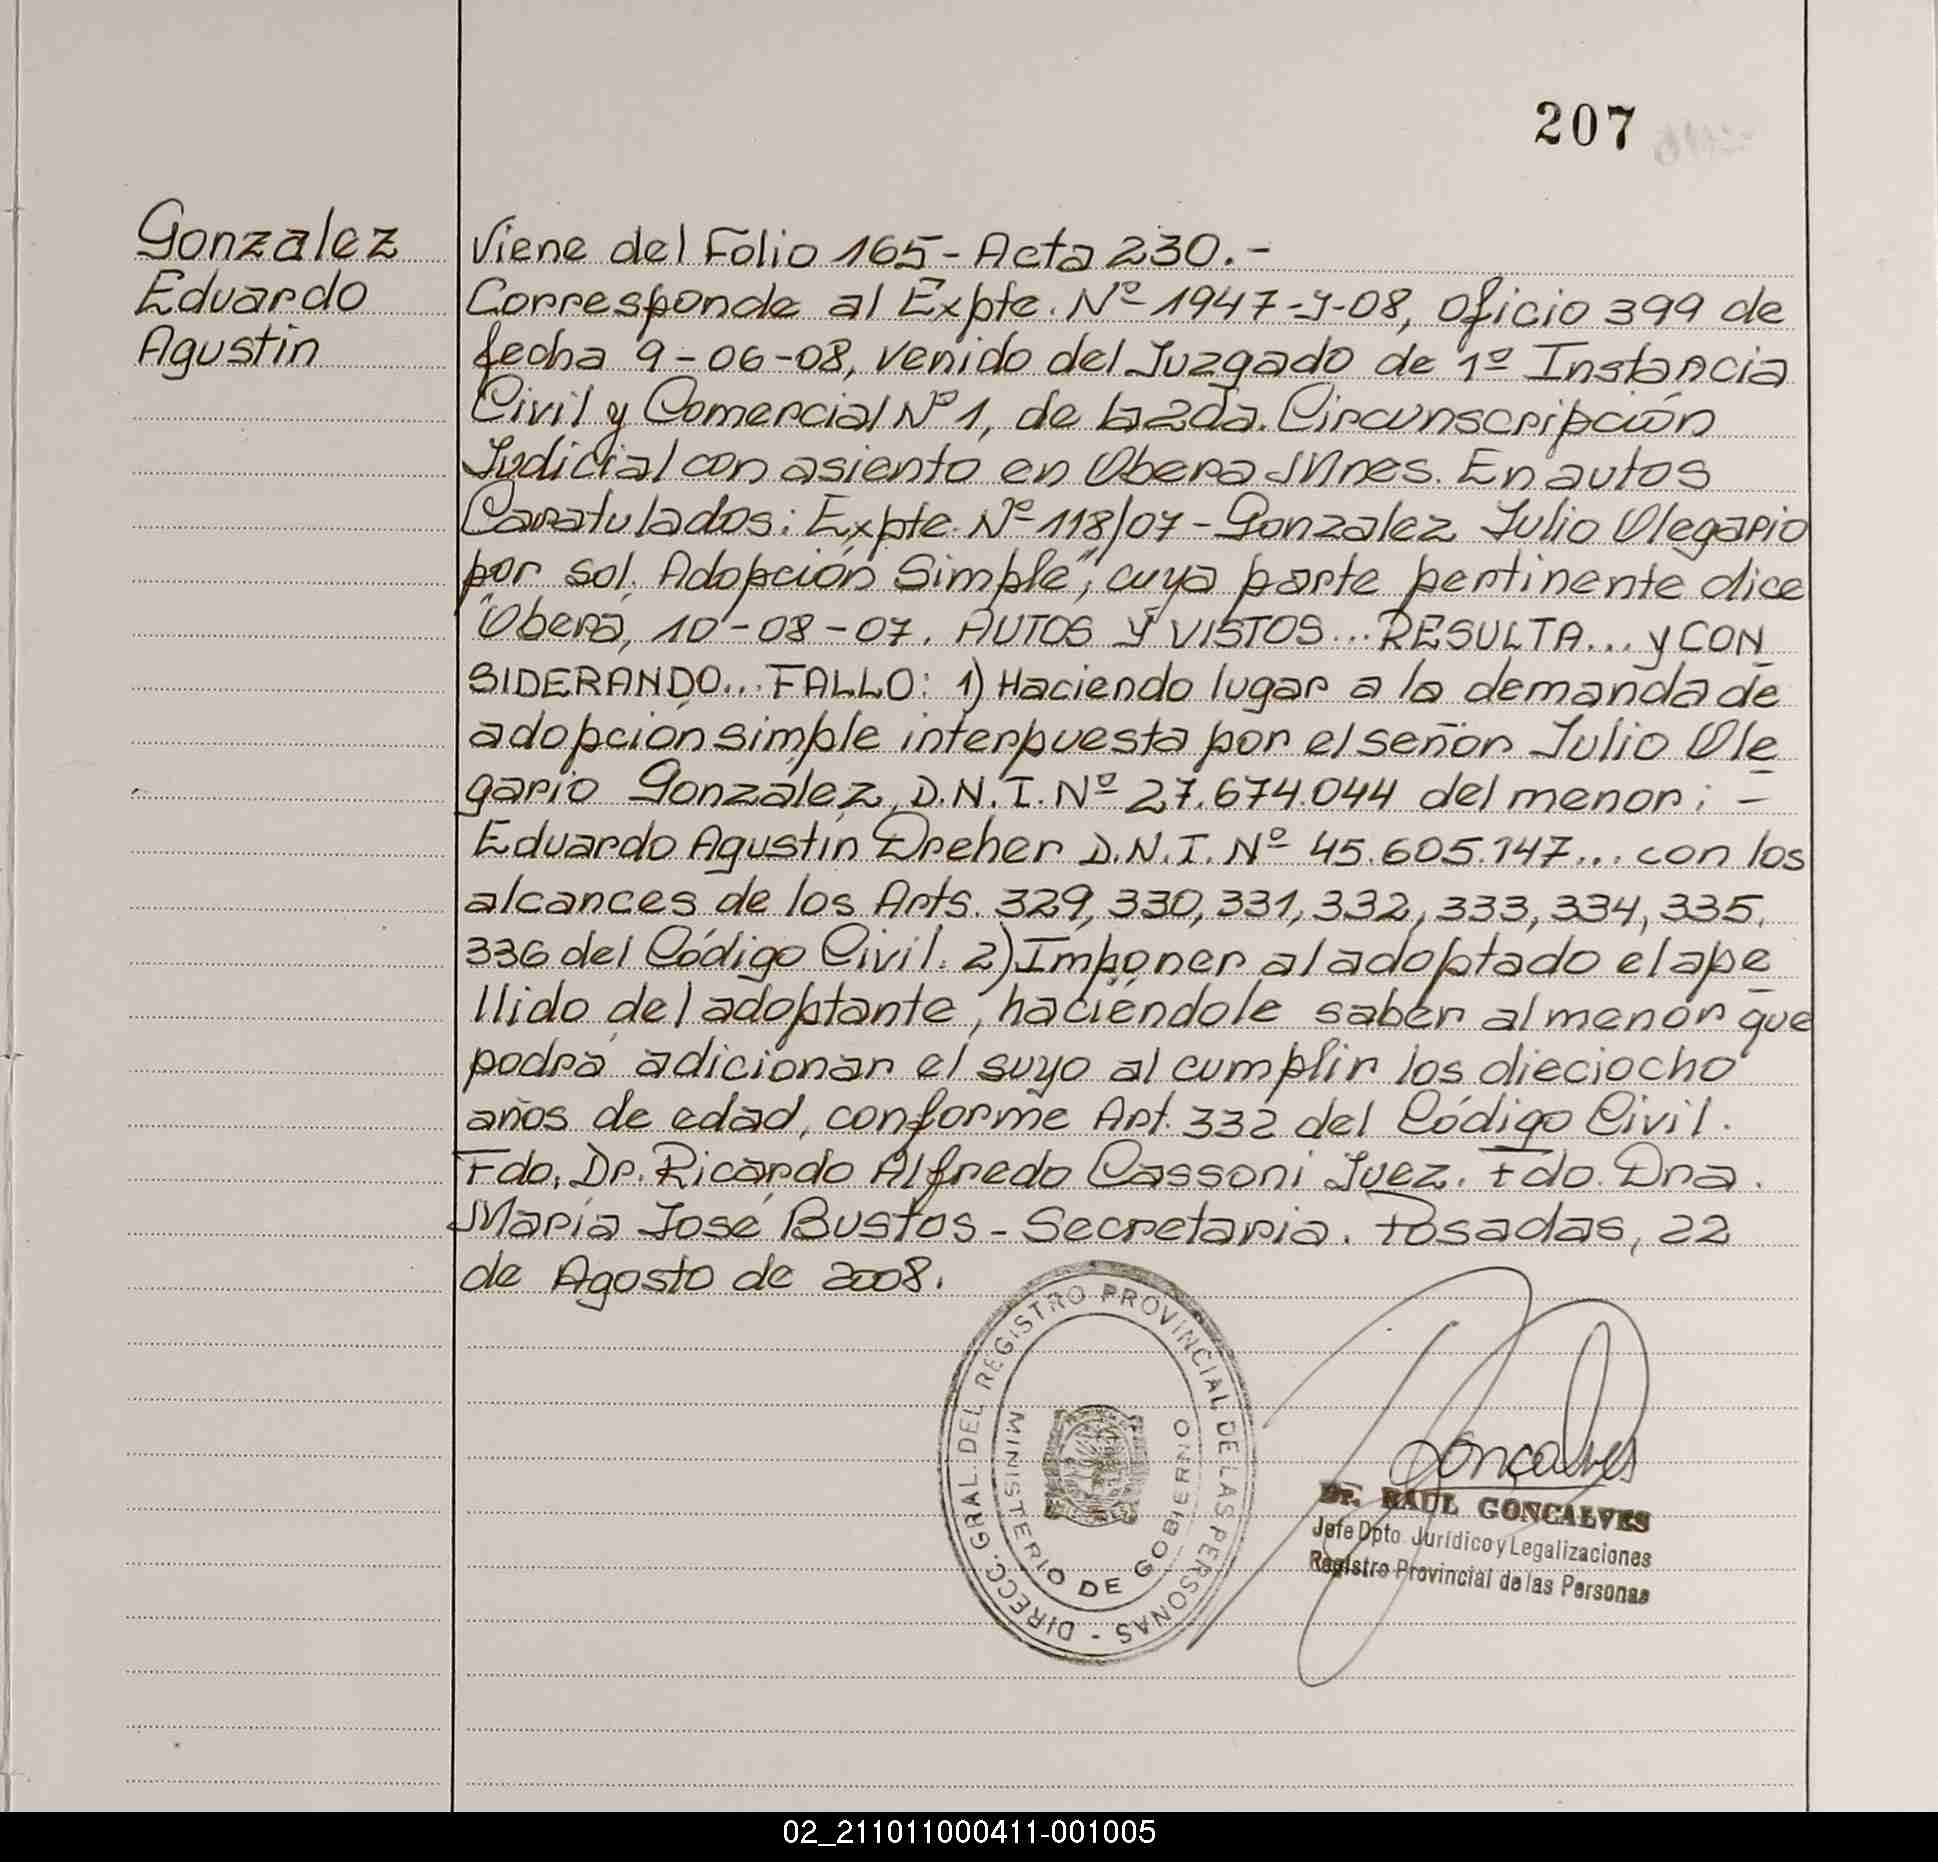 207
Gonzalez
Eduardo
Agustin
Viene del Folio 165 - Acta 230.-
Corresponde al Expte. Nº 1947-J-08, oficio 399 de
fecha 9-06-08, venido del Juzgado de 1º Instancia
Civil y Comercial Nº 1, de la 2da. Circunscripción
Judicial con asiento en Obera Mnes. En autos
Caratulados: Expte. Nº 118/07 - Gonzalez Julio Olegario
por sol. Adopción Simple", cuya parte pertinente dice
"Oberá, 10-08-07. AUTOS Y VISTOS... RESULTA... y CON
SIDERANDO... FALLO: 1) Haciendo lugar a la demanda de
adopción simple interpuesta por el señor Julio Ole
gario González, D.N.I. Nº 27.674.044 del menor; -
Eduardo Agustín Dreher D.N.I. Nº 45.605.147... con los
alcances de los Arts. 329, 330, 331, 332, 333, 334, 335,
336 del Código Civil. 2) Imponer al adoptado el ape
llido del adoptante, haciéndole saber al menor que
podrá adicionar el suyo al cumplir los dieciocho
años de edad, conforme Art. 332 del Código Civil.
Fdo. Dr. Ricardo Alfredo Cassoni Juez. Fdo. Dra.
María José Bustos - Secretaria. Posadas, 22
de Agosto de 2008.
DIRECC. GRAL. DEL REGISTRO PROVINCIAL DE LAS PERSONAS -
MINISTERIO DE GOBIERNO
Gonçalves
Dr. RAUL GONCALVES
Jefe Dpto. Jurídico y Legalizaciones
Registro Provincial de las Personas
02_211011000411-001005